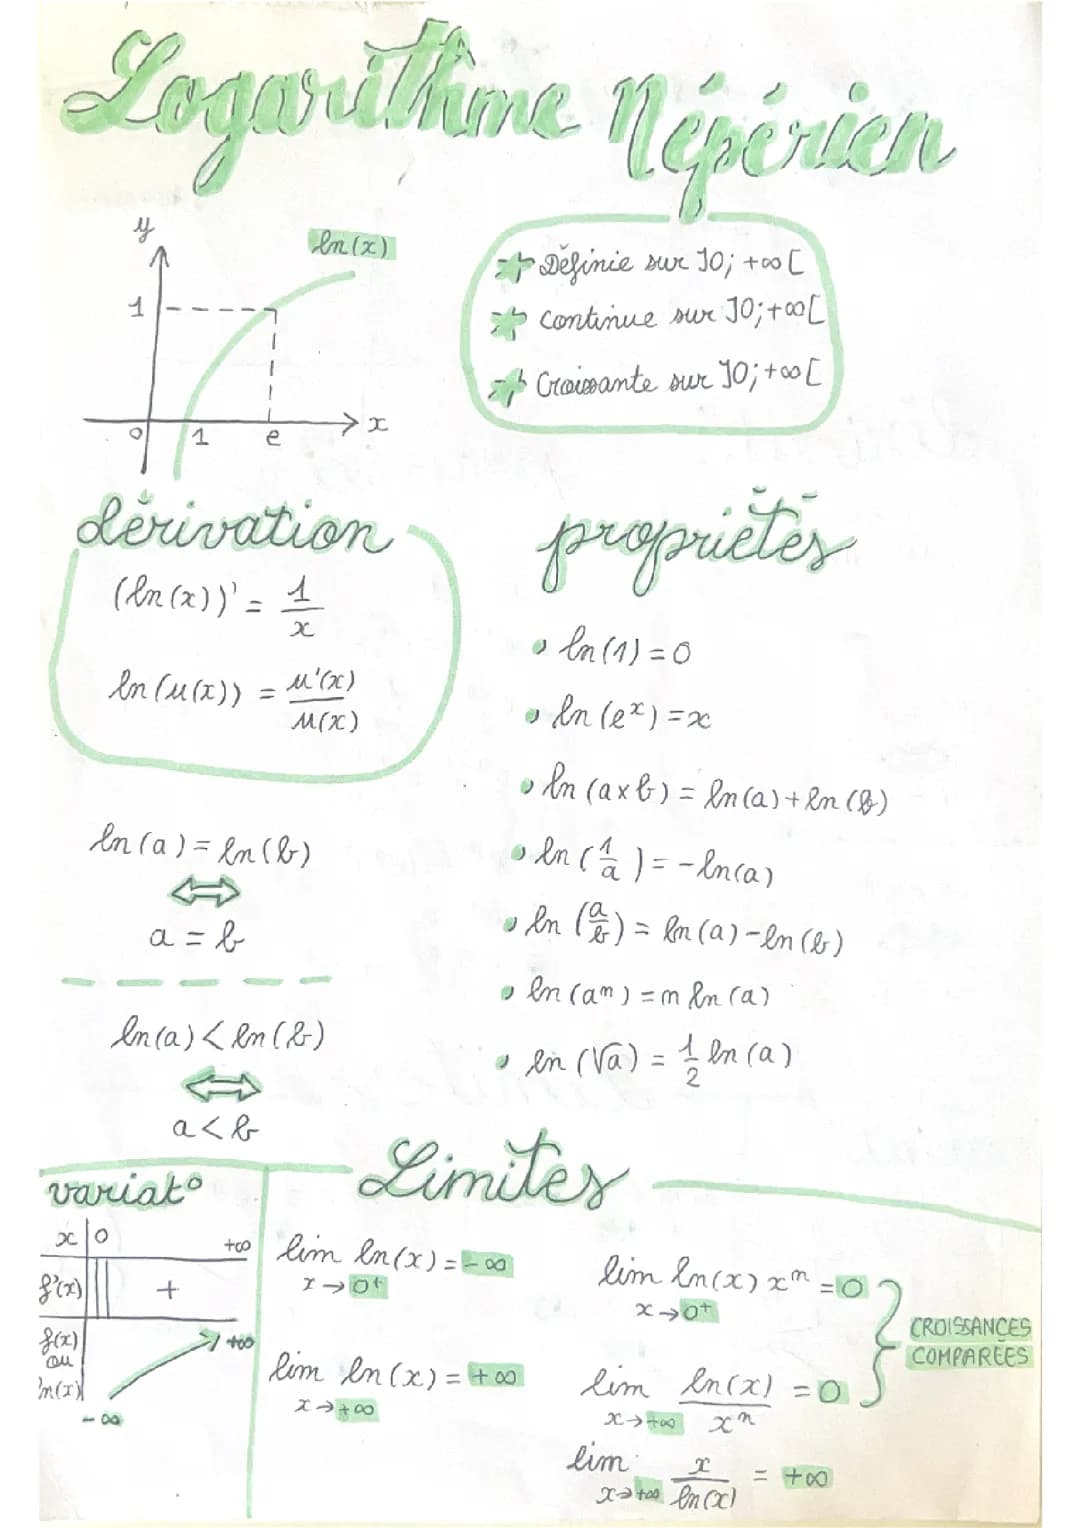 Logarithme Népérien
y
ln(x)
1
0 1 e x
Définie sur ]0; +∞[
continue sur ]0; +∞[
Croissante sur ]0; +∞[
dérivation
(ln(x))' = 1/x
ln(u(x)) = u'(x)/u(x)
ln(a) = ln(b)
⇔
a = b
ln(a) < ln(b)
⇔
a < b
propriétés
ln(1) = 0
ln(eˣ) = x
ln(a×b) = ln(a) + ln(b)
ln(1/a) = -ln(a)
ln(a/b) = ln(a) - ln(b)
ln(aⁿ) = n ln(a)
ln(√a) = 1/2 ln(a)
variat°
x 0 +∞
f'(x) +
f(x) +∞
ou
ln(x)
-∞
Limites
lim ln(x) = -∞
x→0+
lim ln(x) = +∞
x→+∞
lim ln(x) xⁿ = 0
x→0+
lim ln(x)/xⁿ = 0
x→+∞
CROISSANCES
COMPARÉES
lim x/ln(x) = +∞
x→+∞